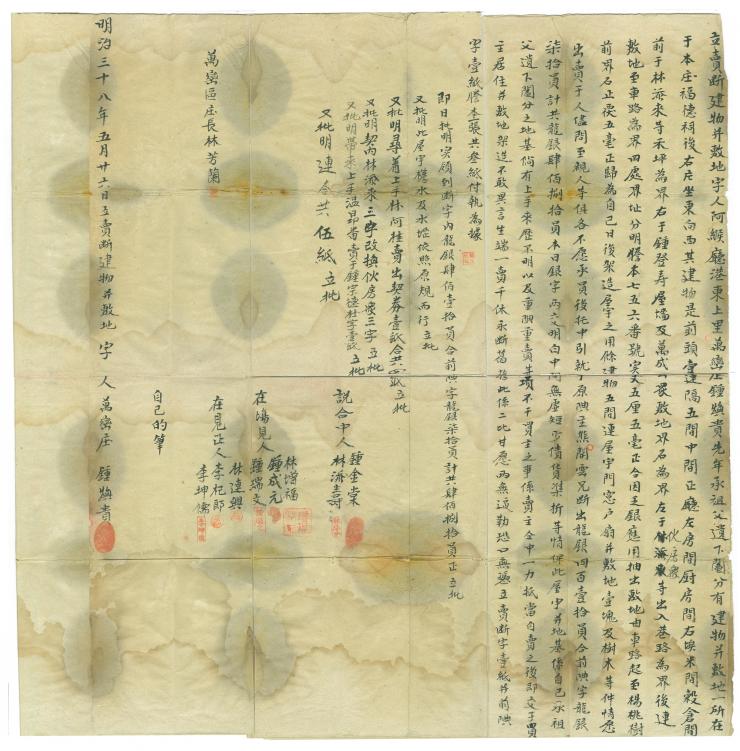 立賣斷建物并敷地字人阿緱廳港東上里萬巒庄鍾煥貴先年承祖父遺下鬮分有建物并敷地一所在
于本庄福德祠後右片坐東向西其建物是前頭壹連隔五間中間正廳左房間廚房間右塽米間穀倉間
前于林派來等禾坪為界右于鍾登壽屋場及萬成公眾敷地界石為界左于伙房眾等出入巷路為界後連
敷地至車路為界四處界址分明謄本七五六番號實丈五厘五毫正合因乏銀應用抽出敷地由車路起至楊桃樹
前界石正長五毫正歸為自己日後架造屋宇之用餘建物五間連屋宇門窓戶扇并敷地壹塊及樹木等件情愿
出賣于人儘問至親人等俱各不愿承員後托中引就于原典主熊開雲兄斷出龍銀四百壹拾員合前典字龍銀
柒拾員計共龍銀肆佰捌拾員本日銀字兩交明白中間無虛短少債貨準折等情保此屋宇并地基係自己承祖
父遺下鬮分之地基倘有上手來歷不明以及重典重賣等項不干買主之事係賣主全中一力抵當自賣之後即交于買
主居住并敷地架造不敢異言生端一賣千休永斷葛籐此係二比甘愿兩無逼勒恐口無憑立賣斷字壹紙并前典
字壹紙謄本張共叁紙付執為據
即日批明實領到斷字內龍銀肆佰壹拾員合前典字龍銀柒拾員計共肆佰捌拾員正立批
又批明此屋宇檐水及水埊依照原規而行立批
又批明尋着上手林阿桂賣出契券壹紙合共四紙立批
又批明契內林派東三字改換伙房眾三字立批
又批明帶來上手溫昂番賣于鍾字德杜字壹紙立批
又批明連合共伍紙立批
說合中人 鍾金棠
林派壽
在場見人 林增福
鍾成元
鍾瑞文
在見正人 林連興
李杞郎
李坤儒
自己的筆
萬巒區庄長林芳蘭
明治三十八年五月廿六日立賣斷建物并敷地字人萬巒庄鍾煥貴